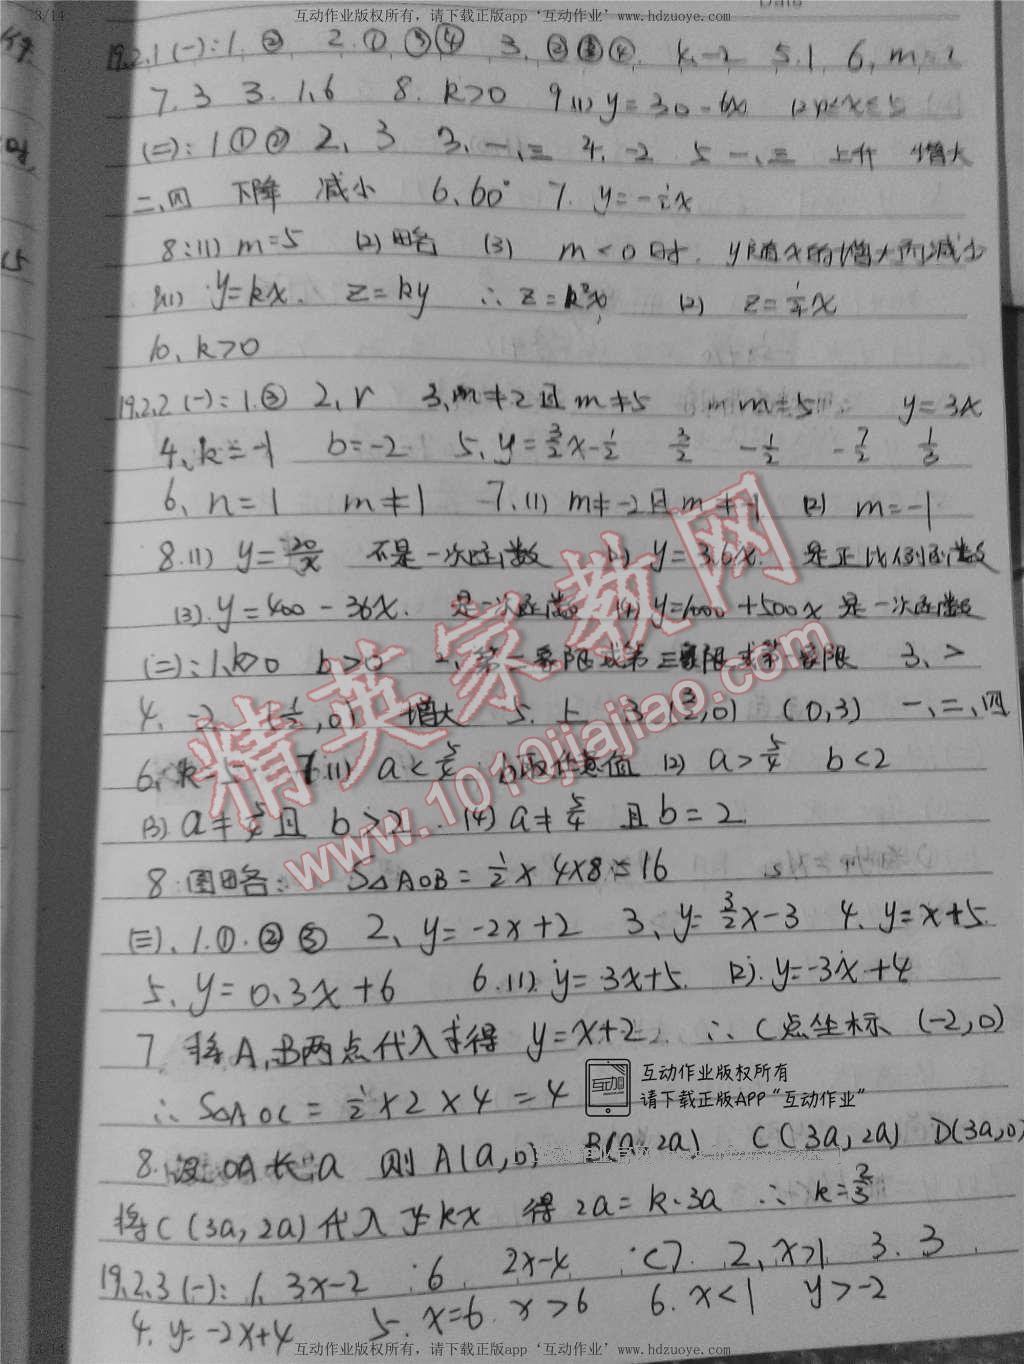 3/14 互动作业版权所有，请下载正版app‘互动作业’ www.hdzuoye.com
19.2.1 (一): 1. ② 2. ① ③ ④ 3. ② ④ 4. -2 5. 1 6. m
7. 3 3. 1,6 8. k>0 9. (1) y=30-6x
(二): 1 ① ② 2, 3 3, 一、三 4, -2 5 一、三 上升 增大
二、四 下降 减小 6、60° 7. y=-½x
8: (1) m=5 (2) 略 (3) m<0时. y随x的增大而减小
(1) y=kx. z=ky ∴ z=k²x (2) z=¼x
10、k>0
19.2.2 (一): 1. ③ 2, r 3, m≠2且m≠5 m=5 y=3x
4、k=-1 b=-2 5、y=3/2x-1/2 3/2 -1/2 -7/2 1/3
6、n=1 m≠1 7. (1) m≠-2且m≠-1 (2) m=-1
8. (1) y=20/x 不是一次函数 (2) y=3.6x. 是正比例函数
(3). y=400-36x. 是一次函数 (4) y=1000+500x 是一次函数
(二): 1、k>0 b>0 2、第二象限或第三象限或第一象限 3、>
4、-2 (½,0) 增大 5. 上 3 (3/2,0) (0,3) 一、二、四
6、 7. (1) a<5/4 b取任意值 (2) a>5/4 b<2
(3) a≠5/4且 b>2. (4) a≠5/4 且b=2
8 图略: S△AOB=½×4×8=16
(三)、1. ①. ② ③ 2、y=-2x+2 3、y=3/2x-3 4、y=x+5.
5、y=0.3x+6 6. (1). y=3x+5. (2). y=-3x+4
7 将A,B两点代入求得 y=x+2. ∴ C点坐标 (-2,0)
∴ S△AOC=½×2×4=4
互动作业版权所有
请下载正版APP“互动作业”
8. 设OA长为a 则A(a,0) B(a,2a) C(3a,2a) D(3a,0)
将C(3a,2a)代入y=kx 得 2a=k·3a ∴ k=2/3
19.2.3 (一): 1、3x-2 6 2x-4 <7. 2、x>1 3. 3
4. y=-2x+4 5. x=6. x>6 6. x<1 y>-2
精英家教网
www.1010jiajiao.com
3/14 互动作业版权所有，请下载正版app‘互动作业’ www.hdzuoye.com